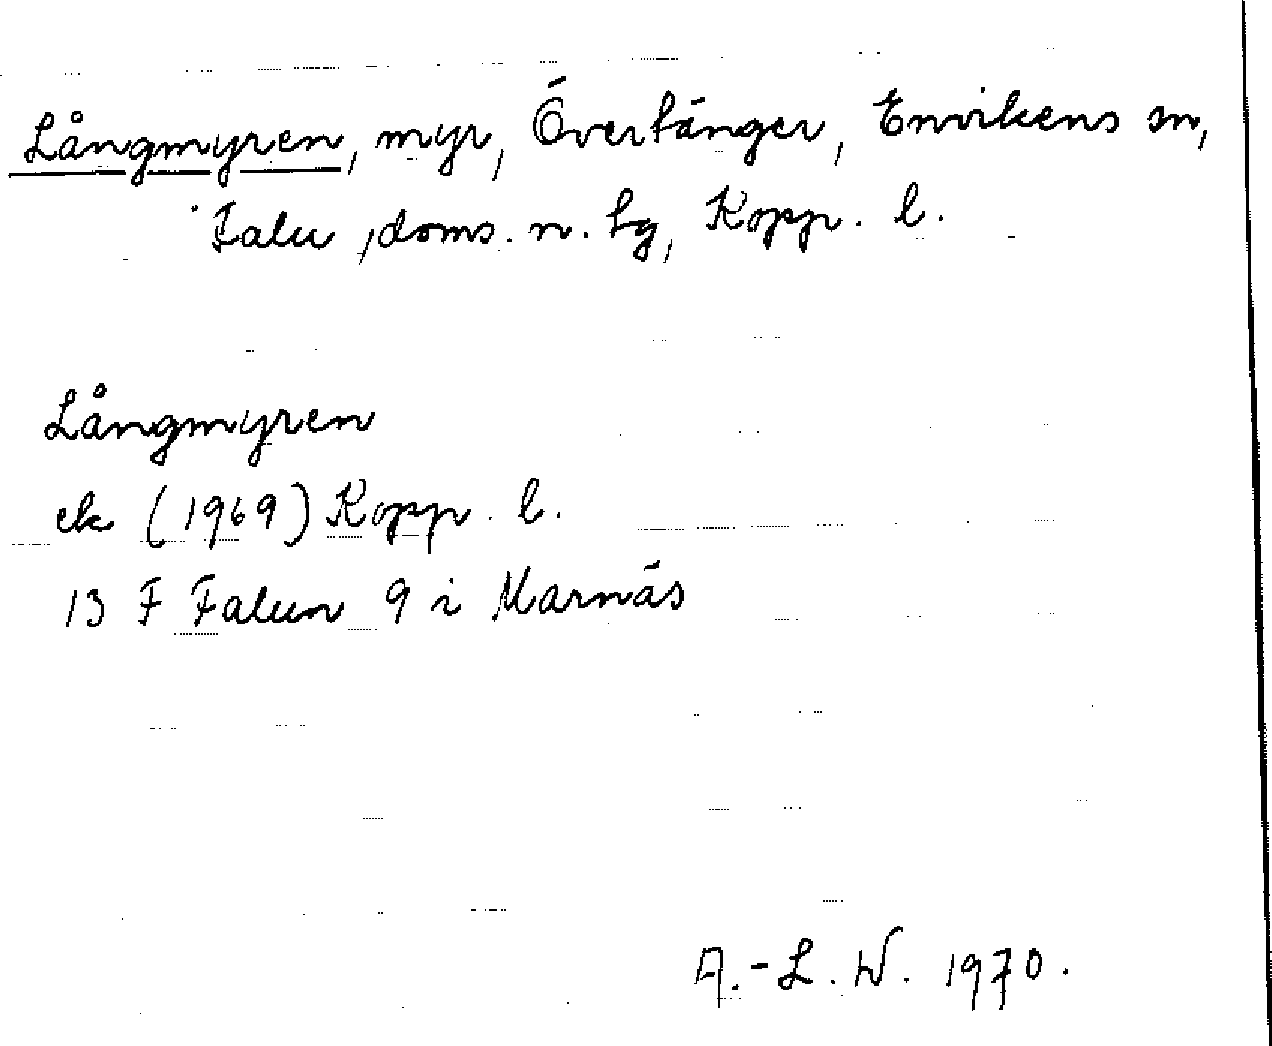 Långmyren, myr, Övertänger, Envikens sn,
Falu doms. n. tg, Kopp. l.
Långmyren
ek (1969) Kopp. l.
13 F Falun 9 i Marnäs
A.-L. W. 1970.